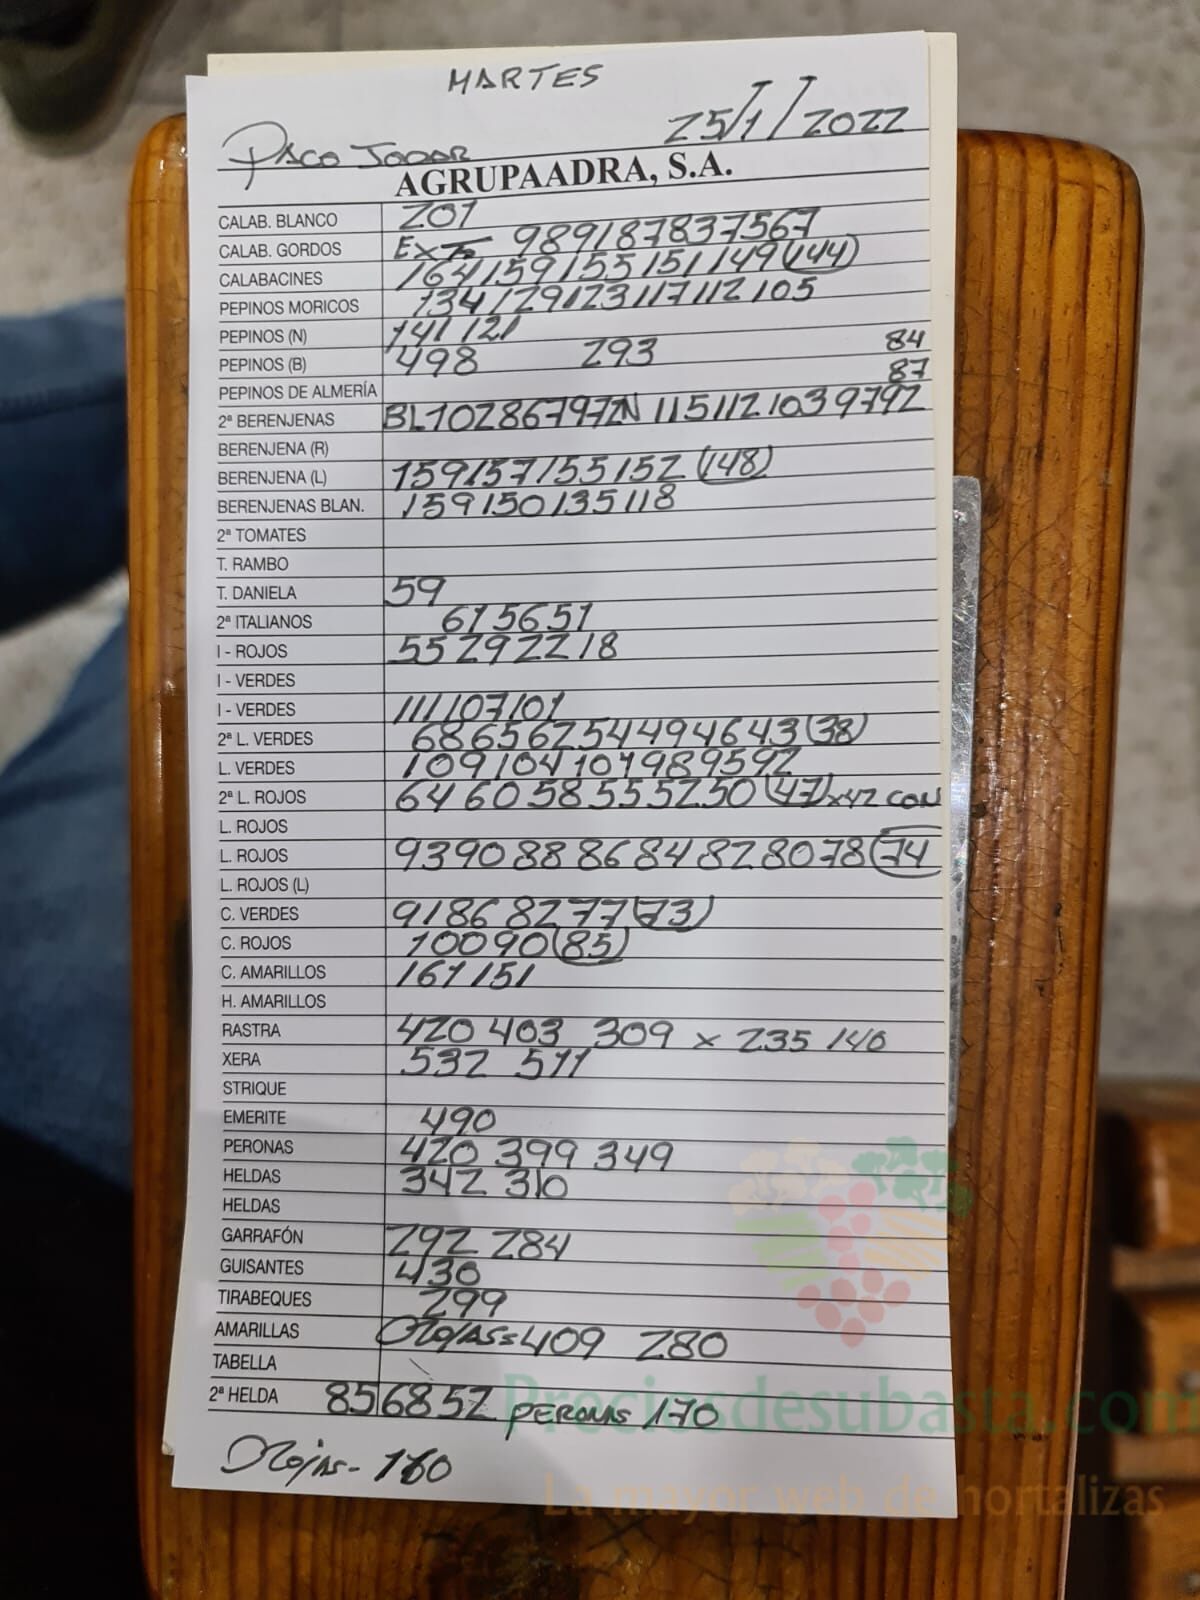 MARTES
25/1/2022
PACO JODAR
AGRUPAADRA, S.A.
CALAB. BLANCO 201
CALAB. GORDOS EXTª 989187837567
CALABACINES 164159155151149(144)
PEPINOS MORICOS 134129123117112105
PEPINOS (N) 141121
PEPINOS (B) 498 293 84
PEPINOS DE ALMERÍA 87
2ª BERENJENAS BL102867972N 1151121039792
BERENJENA (R)
BERENJENA (L) 159157155152(148)
BERENJENAS BLAN. 159150135118
2ª TOMATES
T. RAMBO
T. DANIELA 59
2ª ITALIANOS 615651
I - ROJOS 55292218
I - VERDES
I - VERDES 111107101
2ª L. VERDES 68656254494643(38)
L. VERDES 109104101989592
2ª L. ROJOS 646058555250(47)x42 CON
L. ROJOS
L. ROJOS 9390888684828078(74
L. ROJOS (L)
C. VERDES 91868277(73)
C. ROJOS 10090(85)
C. AMARILLOS 161151
H. AMARILLOS
RASTRA 420 403 309 x 235 140
XERA 532 511
STRIQUE
EMERITE 490
PERONAS 420 399 349
HELDAS 342 310
HELDAS
GARRAFÓN 292 284
GUISANTES 430
TIRABEQUES 299
AMARILLAS ROJAS=409 280
TABELLA
2ª HELDA 856852 PERONAS 170
ROJAS- 160
Preciosdesubasta.com
La mayor web de hortalizas